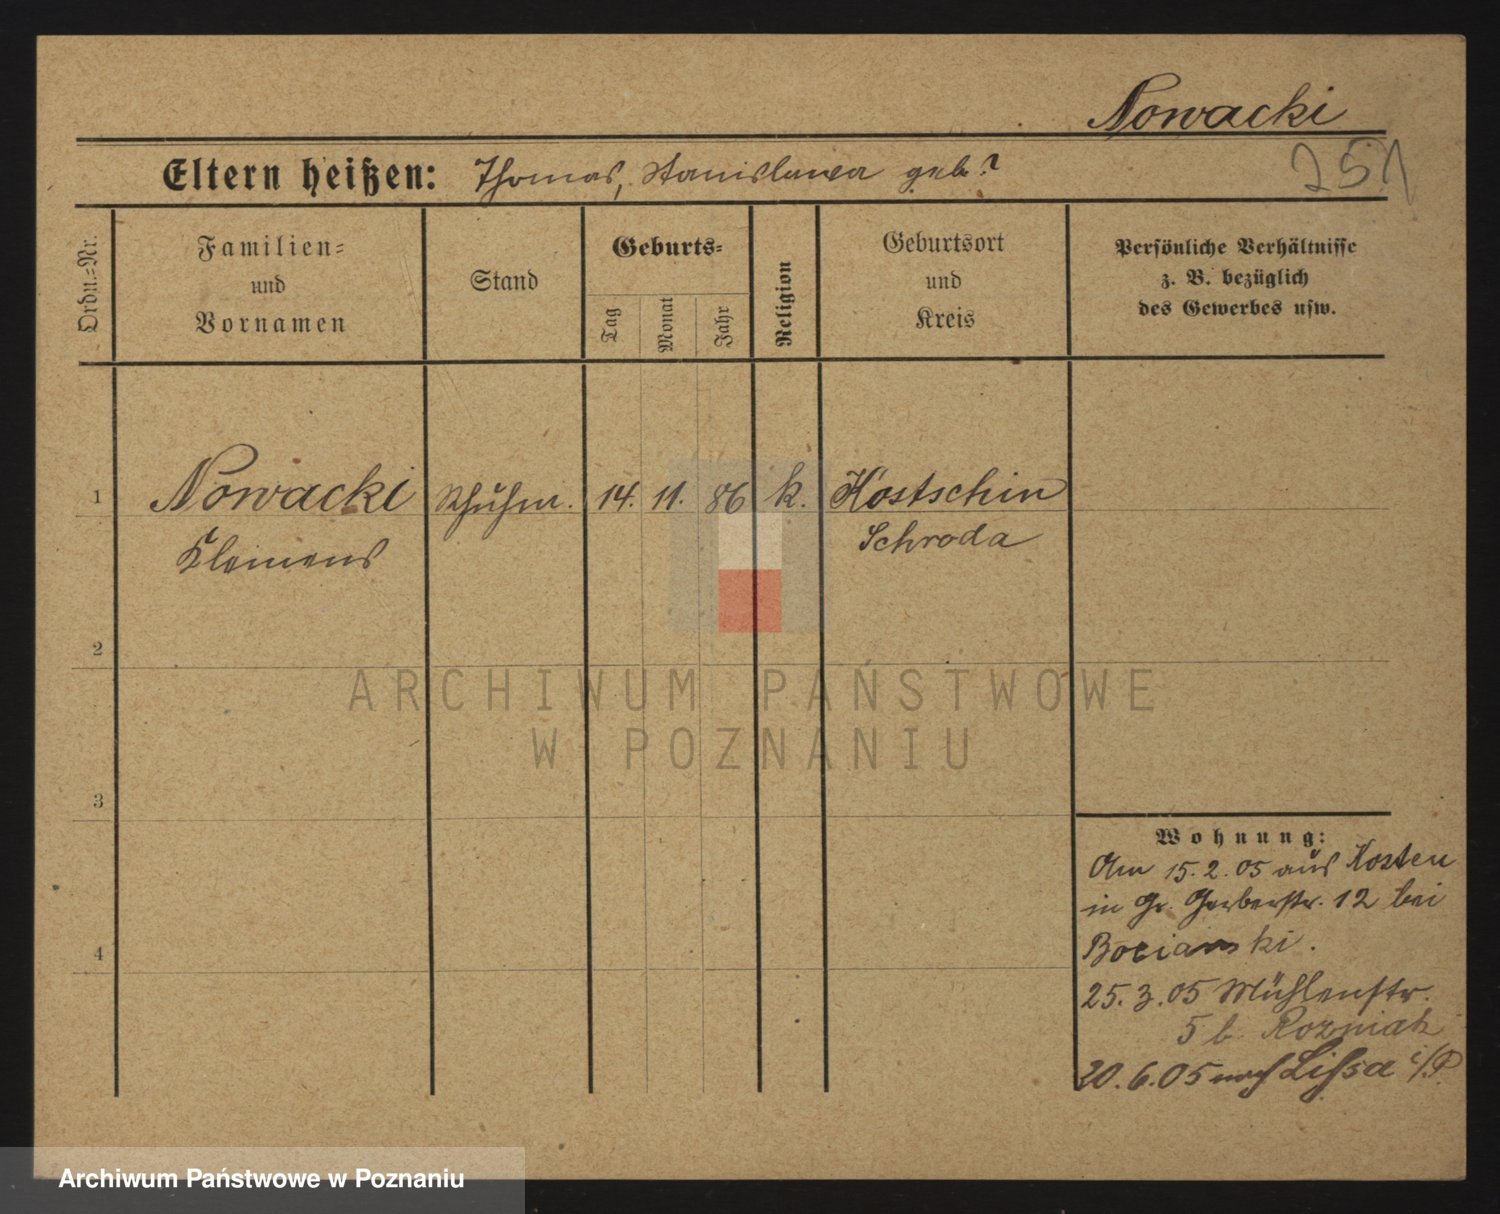 Nowacki
Eltern heißen: Thomas, Stanislawa geb?
251
Ordn.=Nr.
Familien=
und
Vornamen
Stand
Geburts=
Tag
Monat
Jahr
Religion
Geburtsort
und
Kreis
Persönliche Verhältnisse
z. B. bezüglich
des Gewerbes usw.
1 Nowacki Schuhm. 14. 11. 86 k. Kostschin
Klemens Schroda
2
ARCHIWUM PAŃSTWOWE
W POZNANIU
3
Wohnung:
Am 15.2.05 aus Kosten
in Gr. Gerberstr. 12 bei
Bocianski.
4
25.3.05 Mühlenstr.
5 b. Rozmiak
20.6.05 nach Lissa i/P.
Archiwum Państwowe w Poznaniu